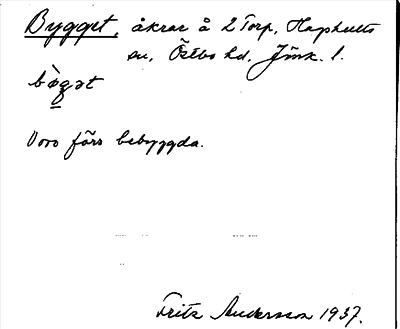 Bygget, åkrar å 2 Torp, Haghults
sn, Östbo hd, Jönk. l.
bỳgət
Voro förs bebyggda.
Fritz Andersson 1937.